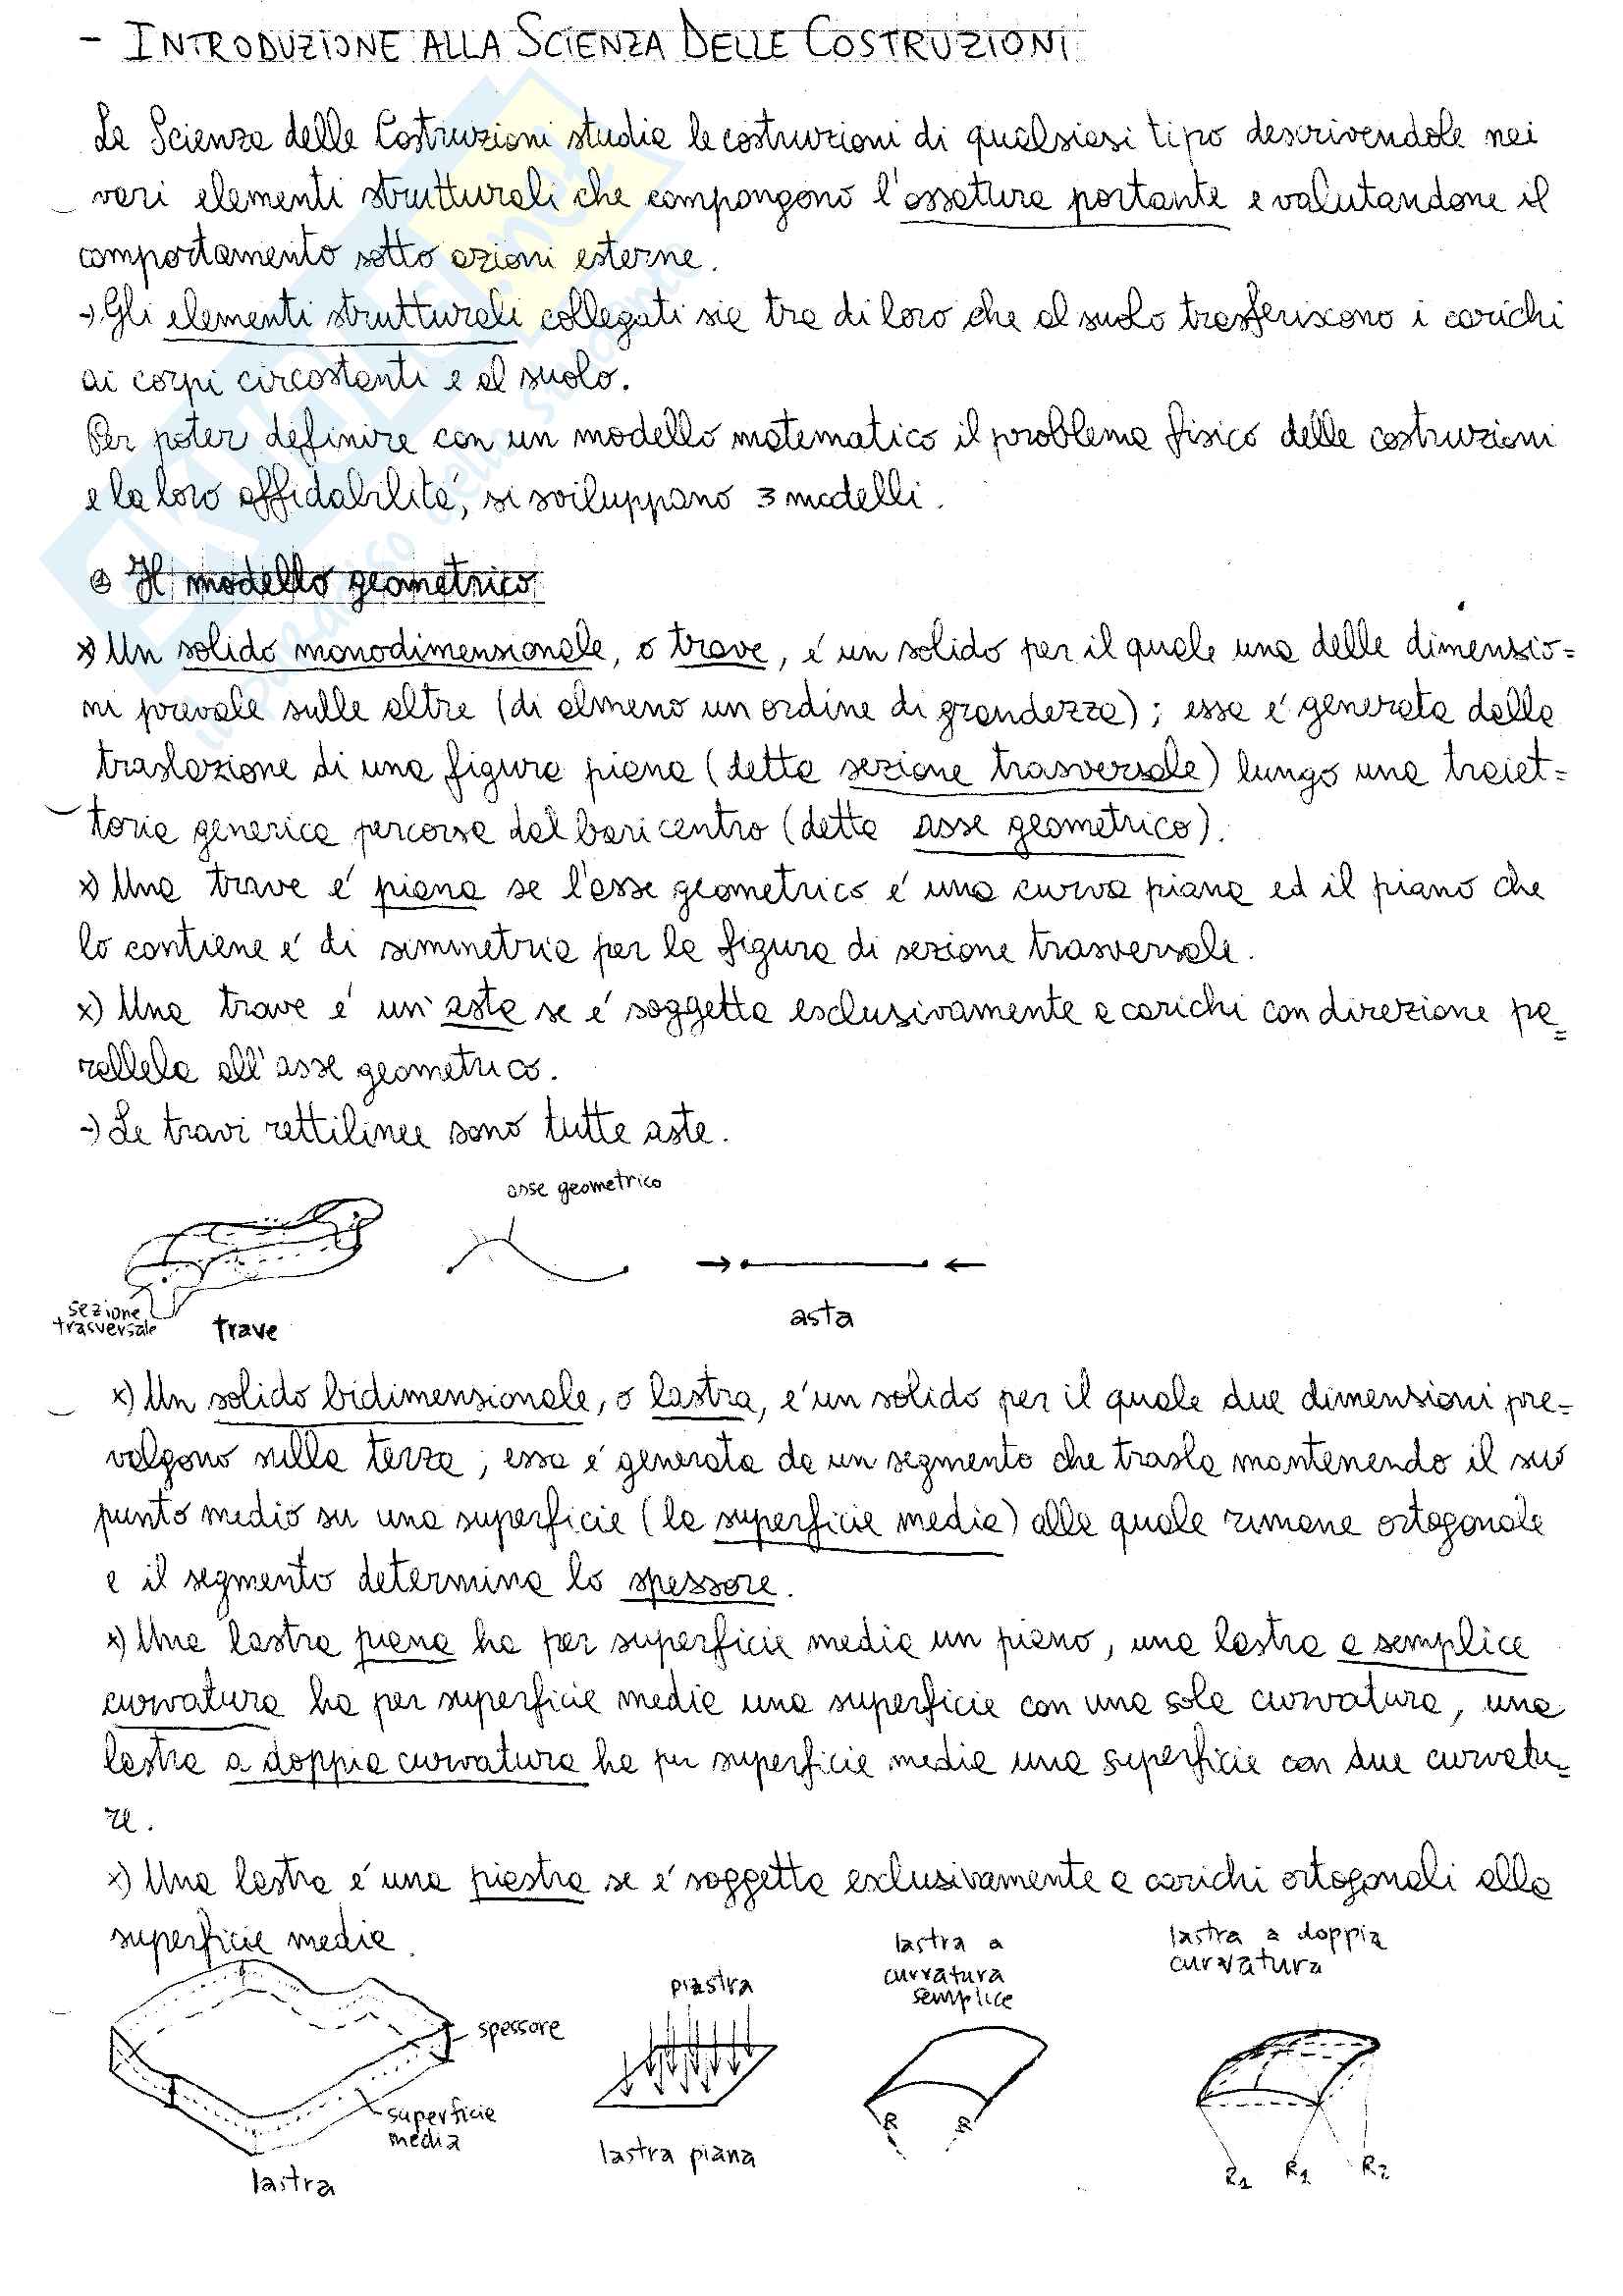 - INTRODUZIONE ALLA SCIENZA DELLE COSTRUZIONI
La Scienza delle Costruzioni studia le costruzioni di qualsiasi tipo descrivendole nei
vari elementi strutturali che compongono l'ossatura portante e valutandone il
comportamento sotto azioni esterne.
→ Gli elementi strutturali collegati sia tra di loro che al suolo trasferiscono i carichi
ai corpi circostanti e al suolo.
Per poter definire con un modello matematico il problema fisico delle costruzioni
e la loro affidabilità, si sviluppano 3 modelli.
Il modello geometrico
x) Un solido monodimensionale, o trave, é un solido per il quale una delle dimensio=
ni prevale sulle altre (di almeno un ordine di grandezza); essa é generata dalla
traslazione di una figura piana (detta sezione trasversale) lungo una traiet=
toria generica percorsa dal baricentro (detta asse geometrico).
x) Una trave é piana se l'asse geometrico é una curva piana ed il piano che
lo contiene é di simmetria per la figura di sezione trasversale.
x) Una trave é un'asta se é soggetta esclusivamente a carichi con direzione pa=
rallela all'asse geometrico.
→ Le travi rettilinee sono tutte aste.
asse geometrico
sezione
trasversale
trave
asta
x) Un solido bidimensionale, o lastra, é un solido per il quale due dimensioni pre=
valgono sulla terza; essa é generata da un segmento che trasla mantenendo il suo
punto medio su una superficie (la superficie media) alla quale rimane ortogonale
e il segmento determina lo spessore.
x) Una lastra piana ha per superficie media un piano, una lastra a semplice
curvatura ha per superficie media una superficie con una sola curvatura, una
lastra a doppia curvatura ha per superficie media una superficie con due curvatu=
re.
x) Una lastra é una piastra se é soggetta esclusivamente a carichi ortogonali alla
superficie media.
spessore
superficie
media
lastra
piastra
lastra piana
lastra a
curvatura
semplice
R R
lastra a doppia
curvatura
R1 R1 R2